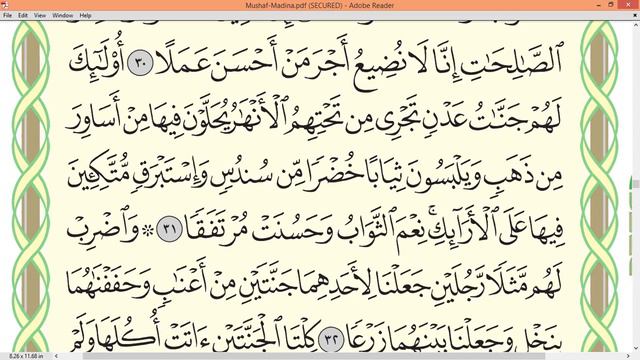 Mushaf-Madina.pdf (SECURED) - Adobe Reader
File Edit View Window Help
ٱلصَّـٰلِحَـٰتِ إِنَّا لَا نُضِيعُ أَجْرَ مَنْ أَحْسَنَ عَمَلًا ٣٠ أُو۟لَـٰٓئِكَ
لَهُمْ جَنَّـٰتُ عَدْنٍ تَجْرِى مِن تَحْتِهِمُ ٱلْأَنْهَـٰرُ يُحَلَّوْنَ فِيهَا مِنْ أَسَاوِرَ
مِن ذَهَبٍ وَيَلْبَسُونَ ثِيَابًا خُضْرًا مِّن سُندُسٍ وَإِسْتَبْرَقٍ مُّتَّكِـِٔينَ
فِيهَا عَلَى ٱلْأَرَآئِكِ ۚ نِعْمَ ٱلثَّوَابُ وَحَسُنَتْ مُرْتَفَقًا ٣١ ۞ وَٱضْرِبْ
لَهُم مَّثَلًا رَّجُلَيْنِ جَعَلْنَا لِأَحَدِهِمَا جَنَّتَيْنِ مِنْ أَعْنَـٰبٍ وَحَفَفْنَـٰهُمَا
بِنَخْلٍ وَجَعَلْنَا بَيْنَهُمَا زَرْعًا ٣٢ كِلْتَا ٱلْجَنَّتَيْنِ ءَاتَتْ أُكُلَهَا وَلَمْ
8.26 x 11.68 in